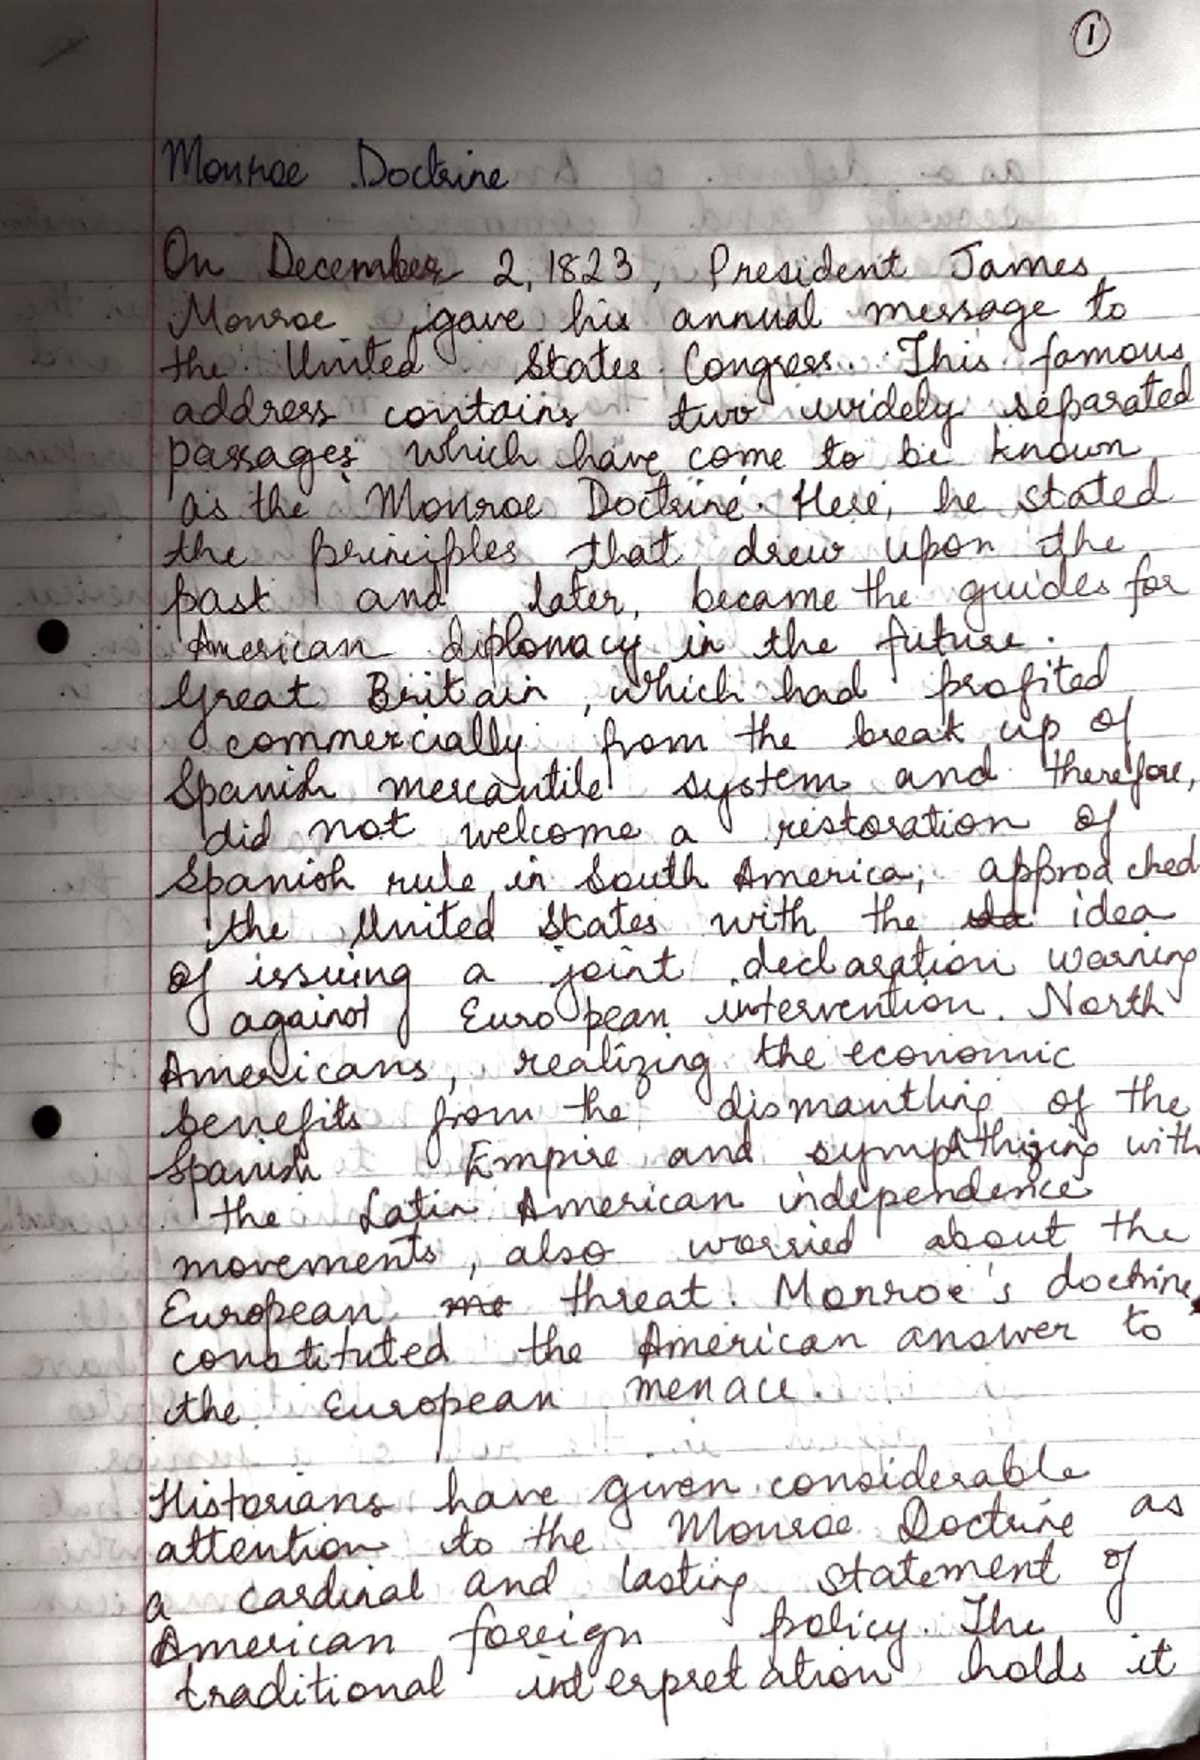 1
Monroe Doctrine
On December 2, 1823, President James
Monroe gave his annual message to
the United States Congress. This famous
address contains two widely separated
passages which have come to be known
as the Monroe Doctrine. Here, he stated
the principles that drew upon the
past and later, became the guides for
American diplomacy in the future.
Great Britain, which had profited
commercially from the break up of
Spanish mercantile system and therefore,
did not welcome a restoration of
Spanish rule in South America; approached
the United States with the idea
of issuing a joint declaration warning
against European intervention. North
Americans, realizing the economic
benefits from the dismantling of the
Spanish Empire and sympthizing with
the Latin American independence
movements, also worried about the
European threat. Monroe's doctrine
constituted the American answer to
the European menace.
Historians have given considerable
attention to the Monroe Doctrine as
a cardinal and lasting statement of
American foreign policy. The
traditional interpretation holds it